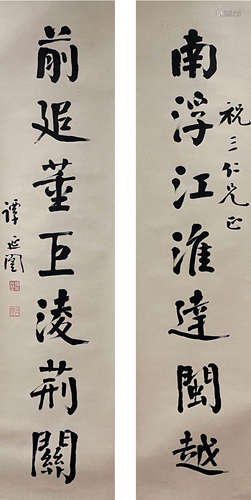 南浮江淮達閩越
祝三仁兄正
前迟董巨淩荊關
譚延闓